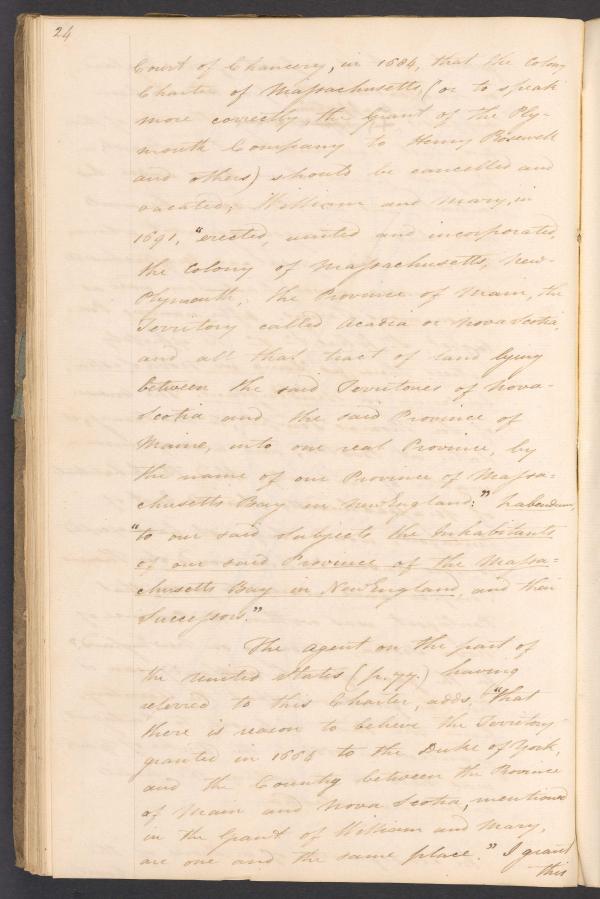 24
Court of Chancery, in 1684, that the Colony
Charter of Massachusetts, (or to speak
more correctly, the Grant of the Ply-
mouth Company to Henry Rosewell
and others) should be cancelled and
vacated; William and Mary, in
1691, "erected, united and incorporated,
the Colony of Massachusetts, New-
Plymouth, the Province of Main, the
Territory called Acadia or Nova Scotia,
and all that tract of land lying
between the said Territories of Nova-
Scotia and the said Province of
Maine, into one real Province, by
the name of our Province of Massa=
chusetts Bay in New England:" habendum,
"to our said subjects the Inhabitants
of our said Province of the Massa=
chusetts Bay in New England, and their
Successors."
The agent on the part of
the United States (p. 77.) having
referred to this Charter, adds, "that
there is reason to believe the Territory
granted in 1664 to the Duke of York,
and the Country between the Province
of Main and Nova Scotia, mentioned
in the Grant of William and Mary,
are one and the same place." I grant
this